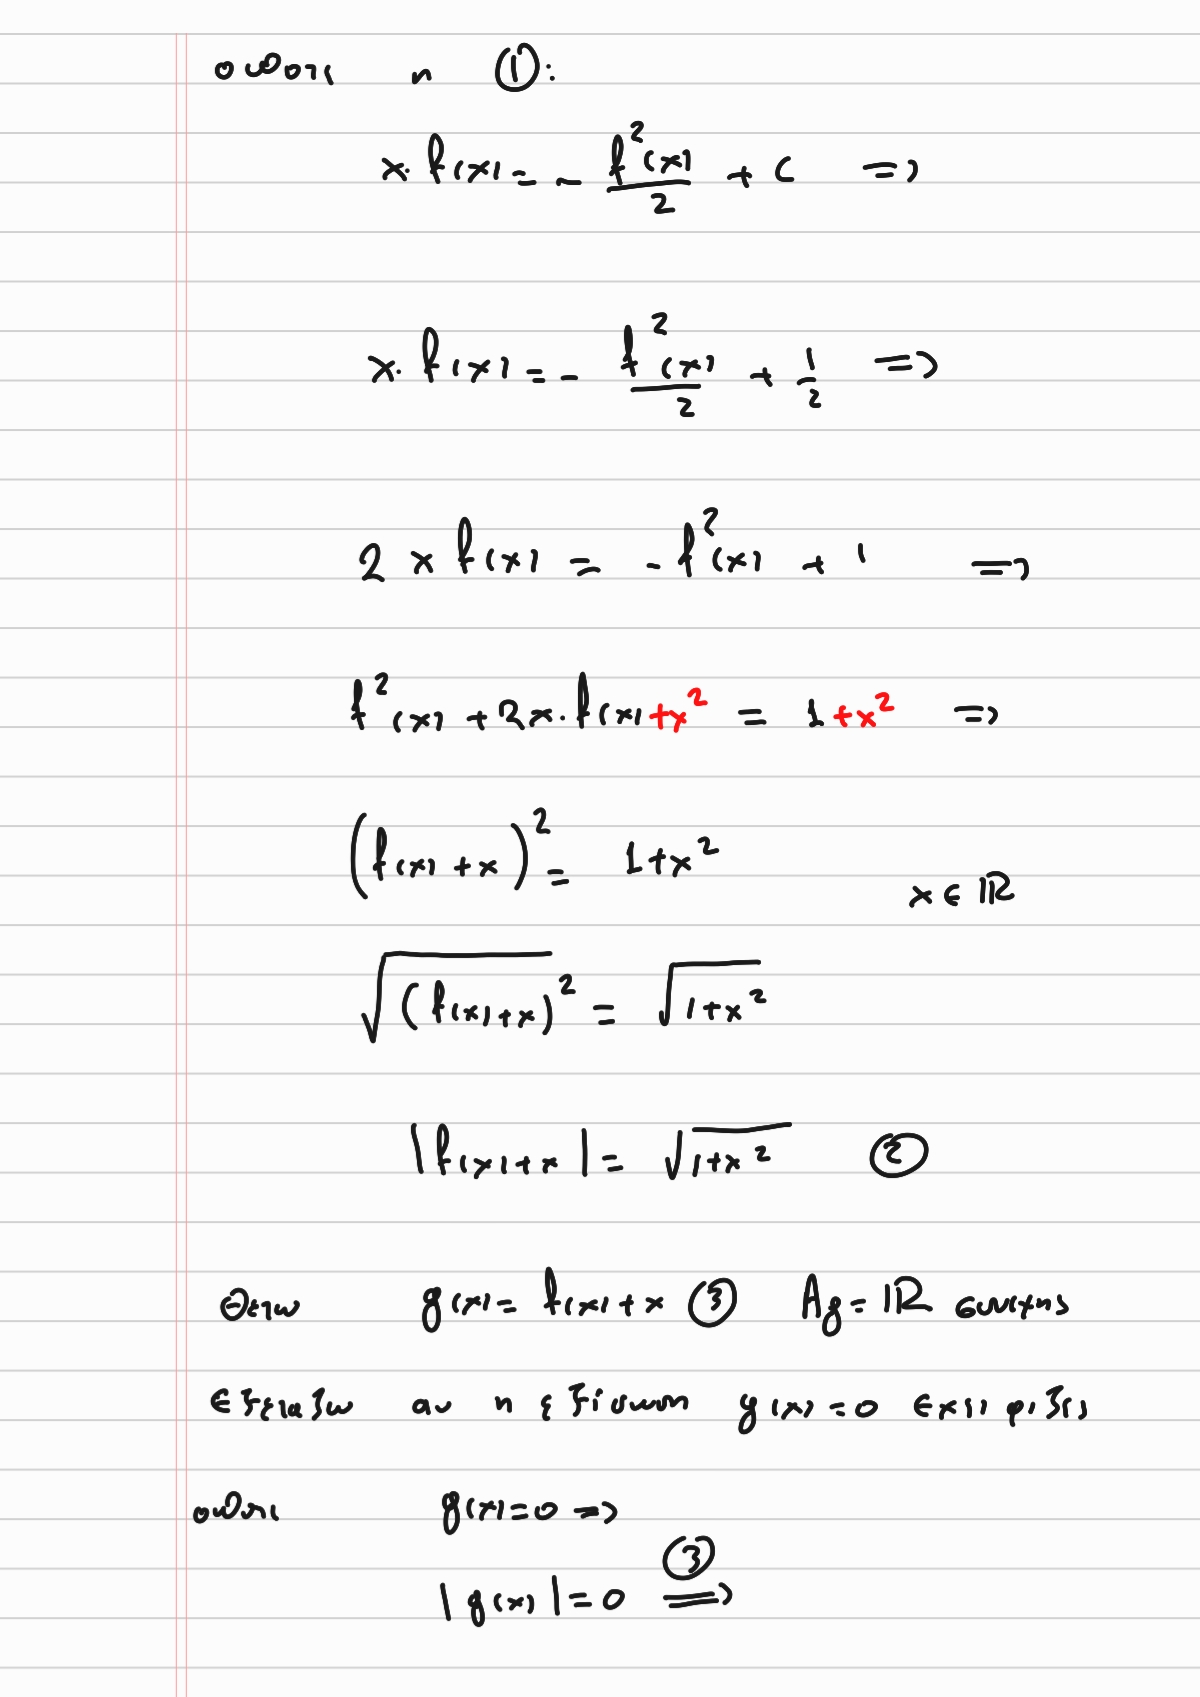 οποτε η ①:
x·f(x) = - f²(x)/2 + c ⇒
x·f(x) = - f²(x)/2 + 1/2 ⇒
2xf(x) = -f²(x) + 1 ⇒
f²(x) + 2x·f(x) + x² = 1 + x² ⇒
(f(x) + x)² = 1 + x²
x ∈ ℝ
√(f(x) + x)² = √1 + x²
|f(x) + x| = √1 + x² ②
Θετω g(x) = f(x) + x ③ Ag = ℝ συνεχης
εξεταζω αν η εξίσωση g(x) = 0 εχει ριζες
οποτε g(x) = 0 ⇒
|g(x)| = 0 ③⇒